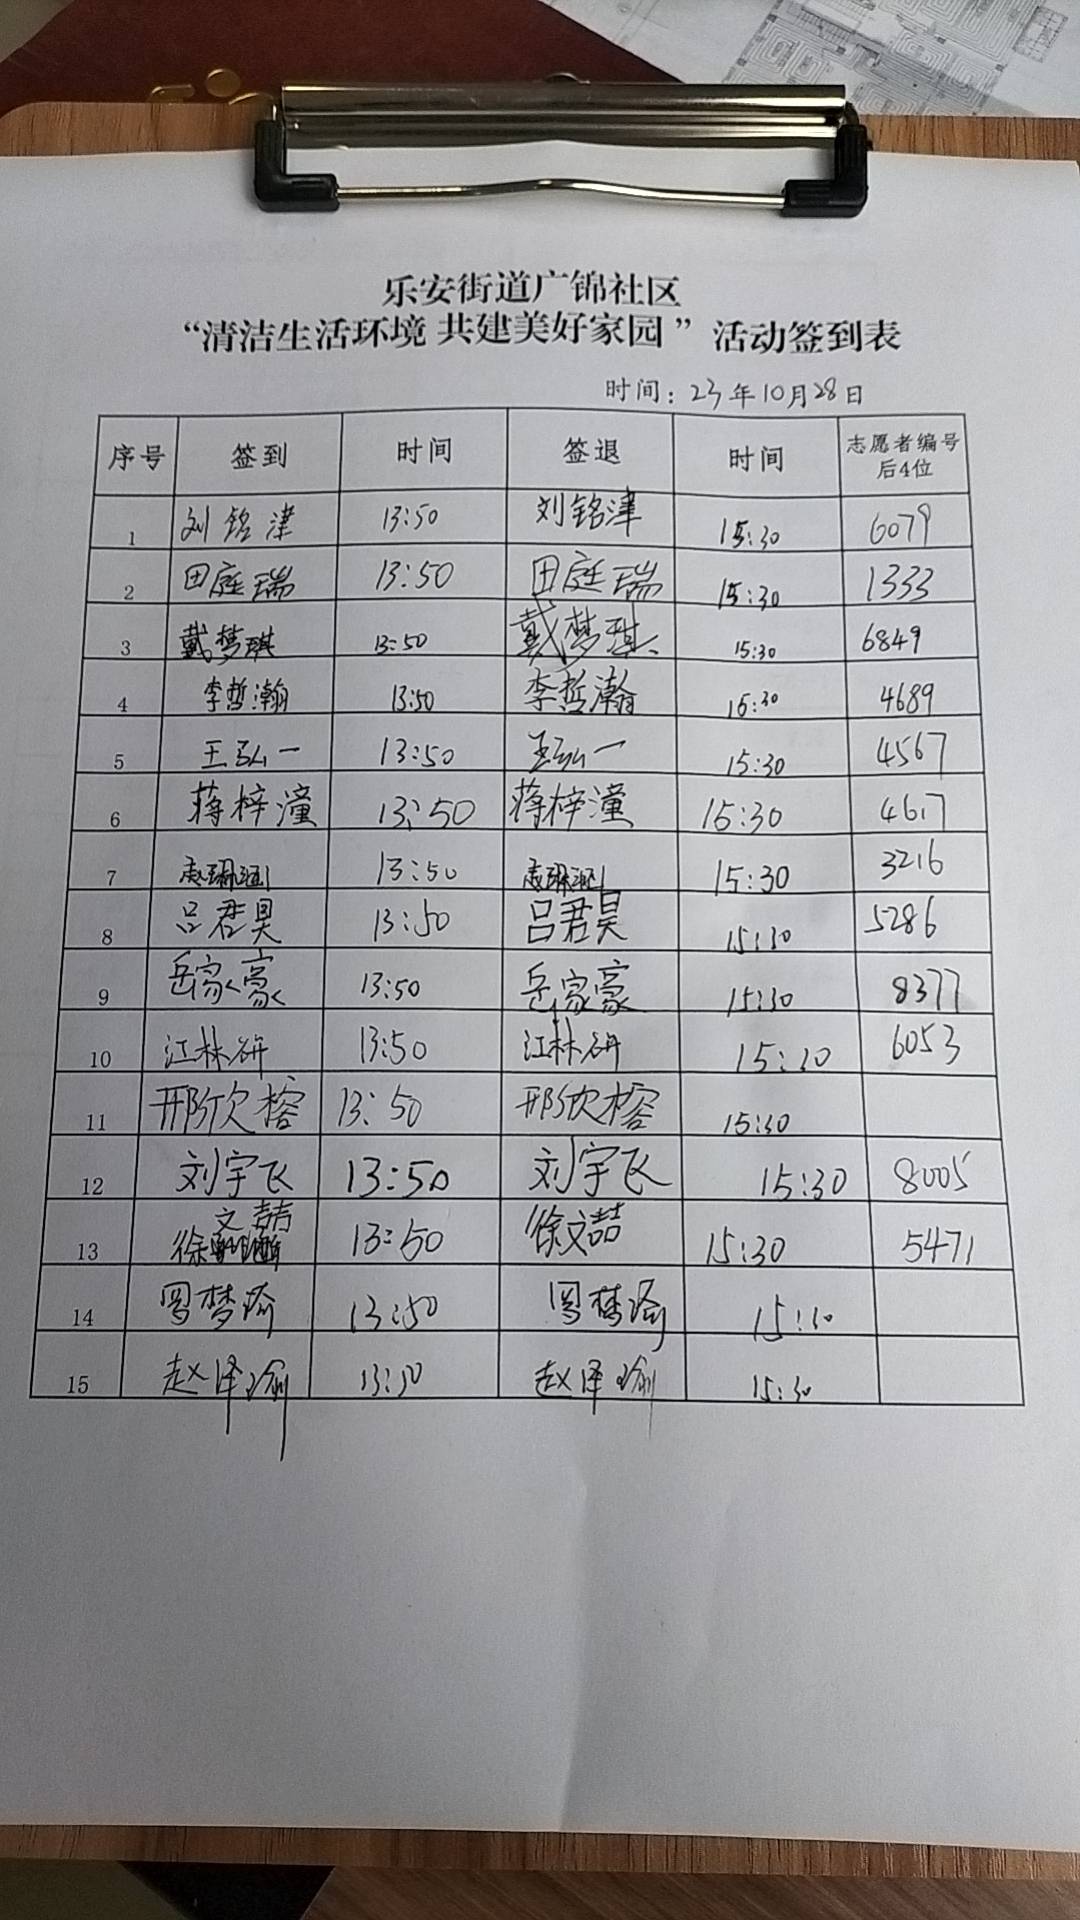 乐安街道广锦社区
“清洁生活环境 共建美好家园 ”活动签到表
时间：23年10月28日
序号 签到 时间 签退 时间 志愿者编号后4位
1 刘铭津 13:50 刘铭津 15:30 6079
2 田庭瑞 13:50 田庭瑞 15:30 1333
3 戴梦琪 13:50 戴梦琪 15:30 6849
4 李哲瀚 13:50 李哲瀚 15:30 4689
5 王弘一 13:50 王弘一 15:30 4567
6 蒋梓潼 13:50 蒋梓潼 15:30 4617
7 赵 13:50 赵 15:30 3216
8 吕君昊 13:50 吕君昊 15:30 5286
9 岳家豪 13:50 岳家豪 15:30 8377
10 江林妍 13:50 江林妍 15:30 6053
11 邢欣榕 13:50 邢欣榕 15:30
12 刘宇飞 13:50 刘宇飞 15:30 8005
13 徐文喆 13:50 徐文喆 15:30 5471
14 梦瑜 13:50 梦瑜 15:30
15 赵泽瑜 13:50 赵泽瑜 15:30